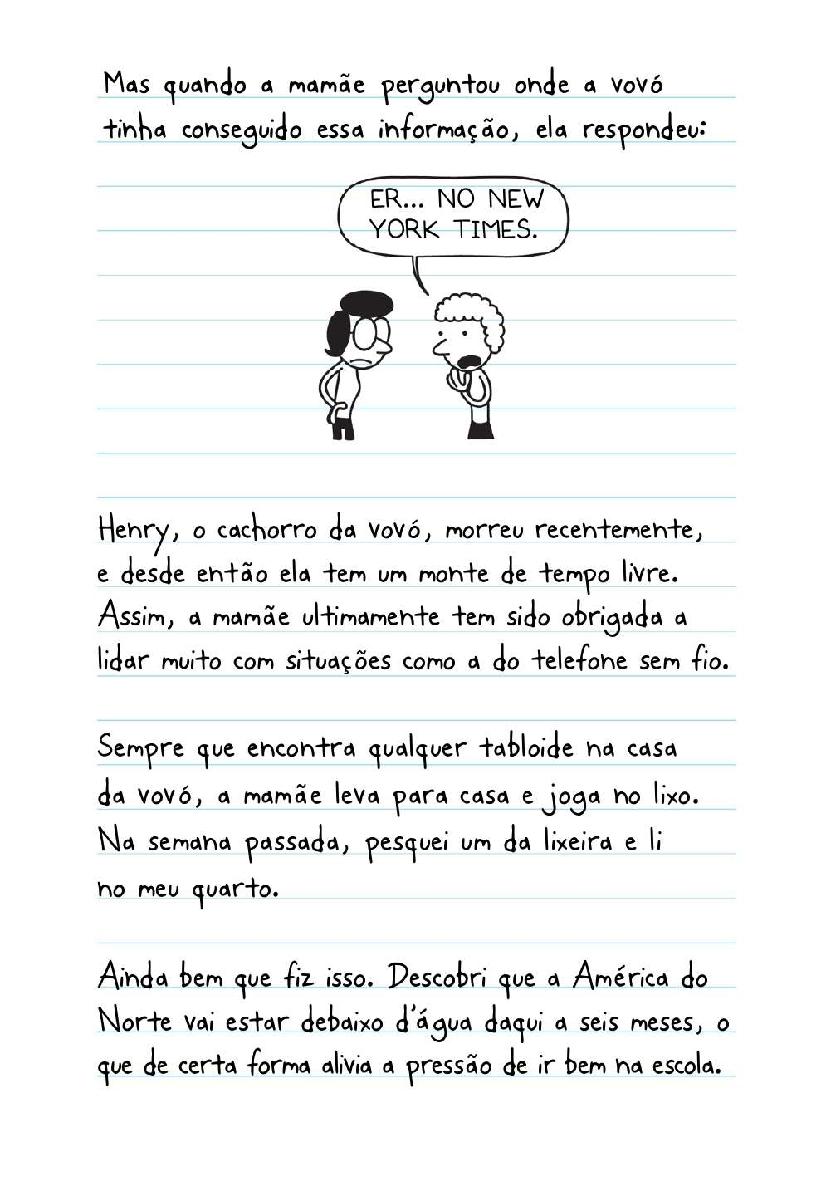 Mas quando a mamãe perguntou onde a vovó
tinha conseguido essa informação, ela respondeu:
ER... NO NEW
YORK TIMES.
Henry, o cachorro da vovó, morreu recentemente,
e desde então ela tem um monte de tempo livre.
Assim, a mamãe ultimamente tem sido obrigada a
lidar muito com situações como a do telefone sem fio.
Sempre que encontra qualquer tabloide na casa
da vovó, a mamãe leva para casa e joga no lixo.
Na semana passada, pesquei um da lixeira e li
no meu quarto.
Ainda bem que fiz isso. Descobri que a América do
Norte vai estar debaixo d'água daqui a seis meses, o
que de certa forma alivia a pressão de ir bem na escola.